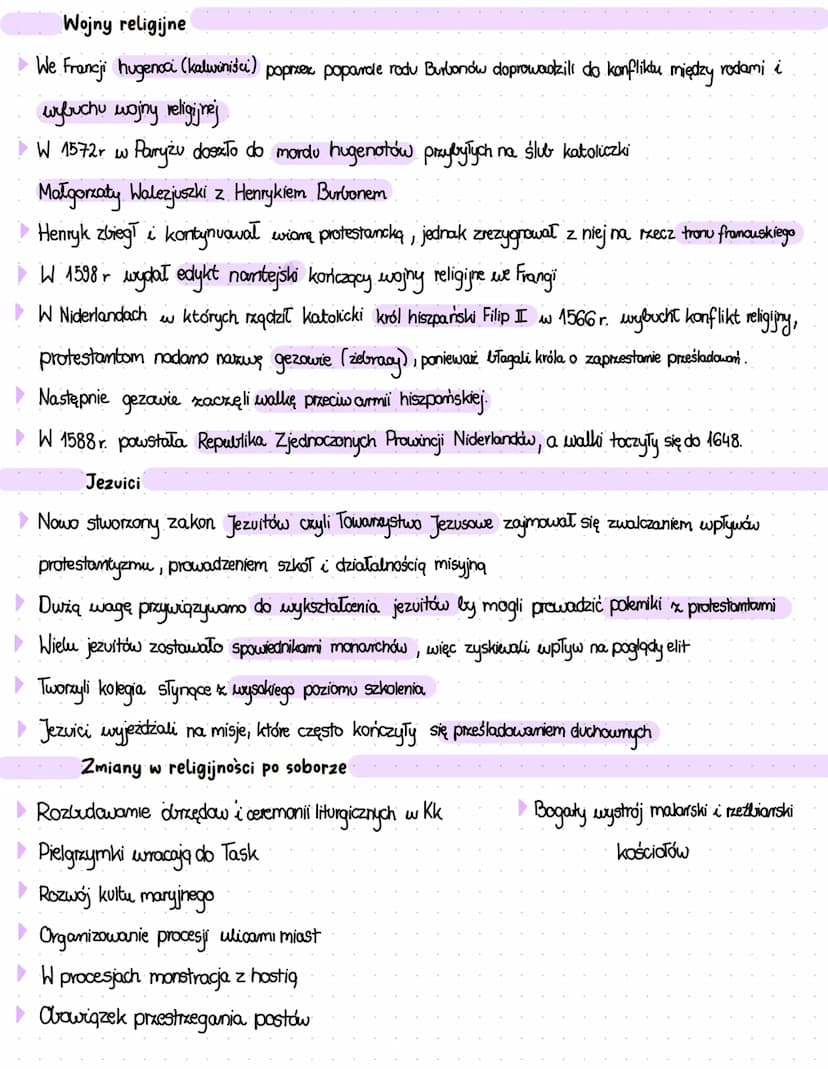 Wojny religijne
We Francji hugenoci (kalwiniści) poprzez poparcie rodu Burbonów doprowadzili do konfliktu między rodami i
wybuchu wojny religijnej
W 1572r w Paryżu doszło do mordu hugenotów przybyłych na ślub katoliczki
Małgorzaty Walezjuszki z Henrykiem Burbonem
Henryk zbiegł i kontynuował wiarę protestancką, jednak zrezygnował z niej na rzecz tronu francuskiego
W 1598r wydał edykt nantejski kończący wojny religijne we Francji
W Niderlandach w których rządził katolicki król hiszpański Filip II w 1566r. wybuchł konflikt religijny,
protestantom nadano nazwę gezowie (żebracy), ponieważ błagali króla o zaprzestanie prześladowań.
Następnie gezowie zaczęli walkę przeciw armii hiszpańskiej.
W 1588r. powstała Republika Zjednoczonych Prowincji Niderlandów, a walki toczyły się do 1648.
Jezuici
Nowo stworzony zakon Jezuitów czyli Towarzystwo Jezusowe zajmował się zwalczaniem wpływów
protestantyzmu, prowadzeniem szkół i działalnością misyjną
Dużą wagę przywiązywano do wykształcenia jezuitów by mogli prowadzić polemiki z protestantami
Wielu jezuitów zostawało spowiednikami monarchów, więc zyskiwali wpływ na poglądy elit
Tworzyli kolegia słynące z wysokiego poziomu szkolenia
Jezuici wyjeżdżali na misje, które często kończyły się prześladowaniem duchownych
Zmiany w religijności po soborze
Rozbudowanie obrzędów i ceremonii liturgicznych w Kk
Pielgrzymki wracają do łask
Rozwój kultu maryjnego
Organizowanie procesji ulicami miast
W procesjach monstracja z hostią
Obowiązek przestrzegania postów
Bogaty wystrój malarski i rzeźbiarski
kościołów